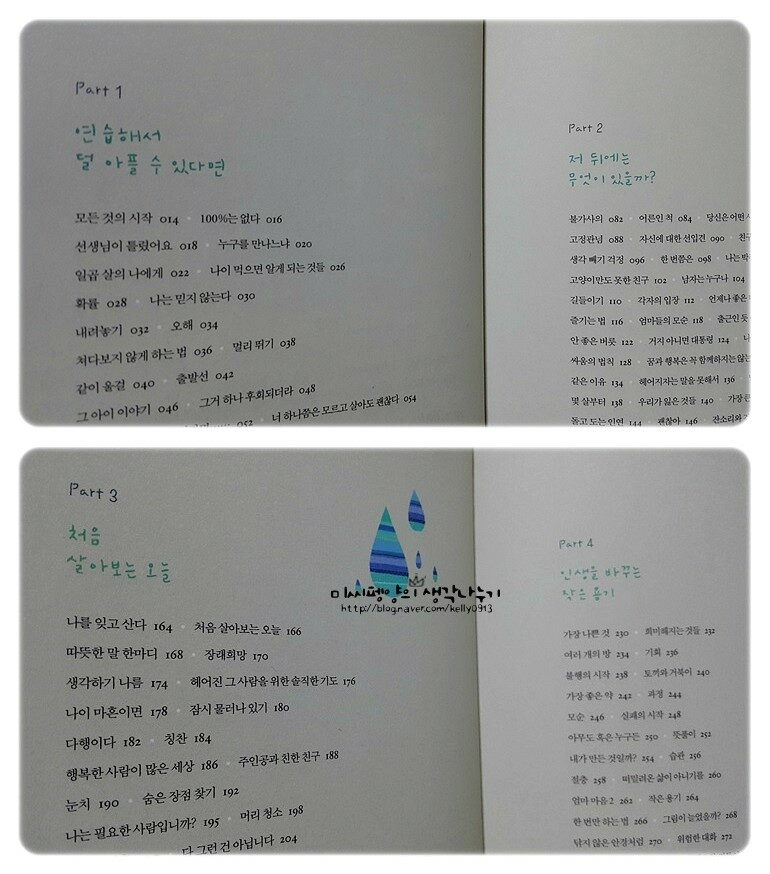 Part 1
연습해서
덜 아플 수 있다면
모든 것의 시작 014 · 100%는 없다 016
선생님이 틀렸어요 018 · 누구를 만나느냐 020
일곱 살의 나에게 022 · 나이 먹으면 알게 되는 것들 026
확률 028 · 나는 믿지 않는다 030
내려놓기 032 · 오해 034
쳐다보지 않게 하는 법 036 · 멀리 뛰기 038
같이 울걸 040 · 출발선 042
그 아이 이야기 046 · 그거 하나 후회되더라 048
052 · 너 하나쯤은 모르고 살아도 괜찮다 054
Part 2
저 뒤에는
무엇이 있을까?
불가사의 082 · 어른인 척 084 · 당신은 어떤
고정관념 088 · 자신에 대한 선입견 090 · 친구
생각 빼기 걱정 096 · 한 번쯤은 098 · 나는
고양이만도 못한 친구 102 · 남자는 누구나 104
길들이기 110 · 각자의 입장 112 · 언제나 좋은
즐기는 법 116 · 엄마들의 모순 118 · 출근인 듯
안 좋은 버릇 122 · 거지 아니면 대통령 124 · 나
싸움의 법칙 128 · 꿈과 행복은 꼭 함께하지는 않는
같은 이유 134 · 헤어지자는 말을 못해서 136
몇 살부터 138 · 우리가 잃은 것들 140 · 가장
돌고 도는 인연 144 · 괜찮아 146 · 잔소리와
Part 3
처음
살아보는 오늘
나를 잊고 산다 164 · 처음 살아보는 오늘 166
따뜻한 말 한마디 168 · 장래희망 170
생각하기 나름 174 · 헤어진 그 사람을 위한 솔직한 기도 176
나이 마흔이면 178 · 잠시 물러나 있기 180
다행이다 182 · 칭찬 184
행복한 사람이 많은 세상 186 · 주인공과 친한 친구 188
눈치 190 · 숨은 장점 찾기 192
나는 필요한 사람입니까? 195 · 머리 청소 198
다 그런 건 아닙니다 204
미씨펭양의 생각나누기
http://blog.naver.com/kelly0913
Part 4
인생을 바꾸는
작은 용기
가장 나쁜 것 230 · 희미해지는 것들 232
여러 개의 방 234 · 기회 236
불행의 시작 238 · 토끼와 거북이 240
가장 좋은 약 242 · 과정 244
모순 246 · 실패의 시작 248
아무도 혹은 누구든 250 · 뜻풀이 252
내가 만든 것일까? 254 · 습관 256
절충 258 · 떠밀려온 삶이 아니기를 260
엄마 마음 2 262 · 작은 용기 264
한 번만 하는 법 266 · 그림이 늘었을까? 268
닦지 않은 안경처럼 270 · 위험한 대화 272